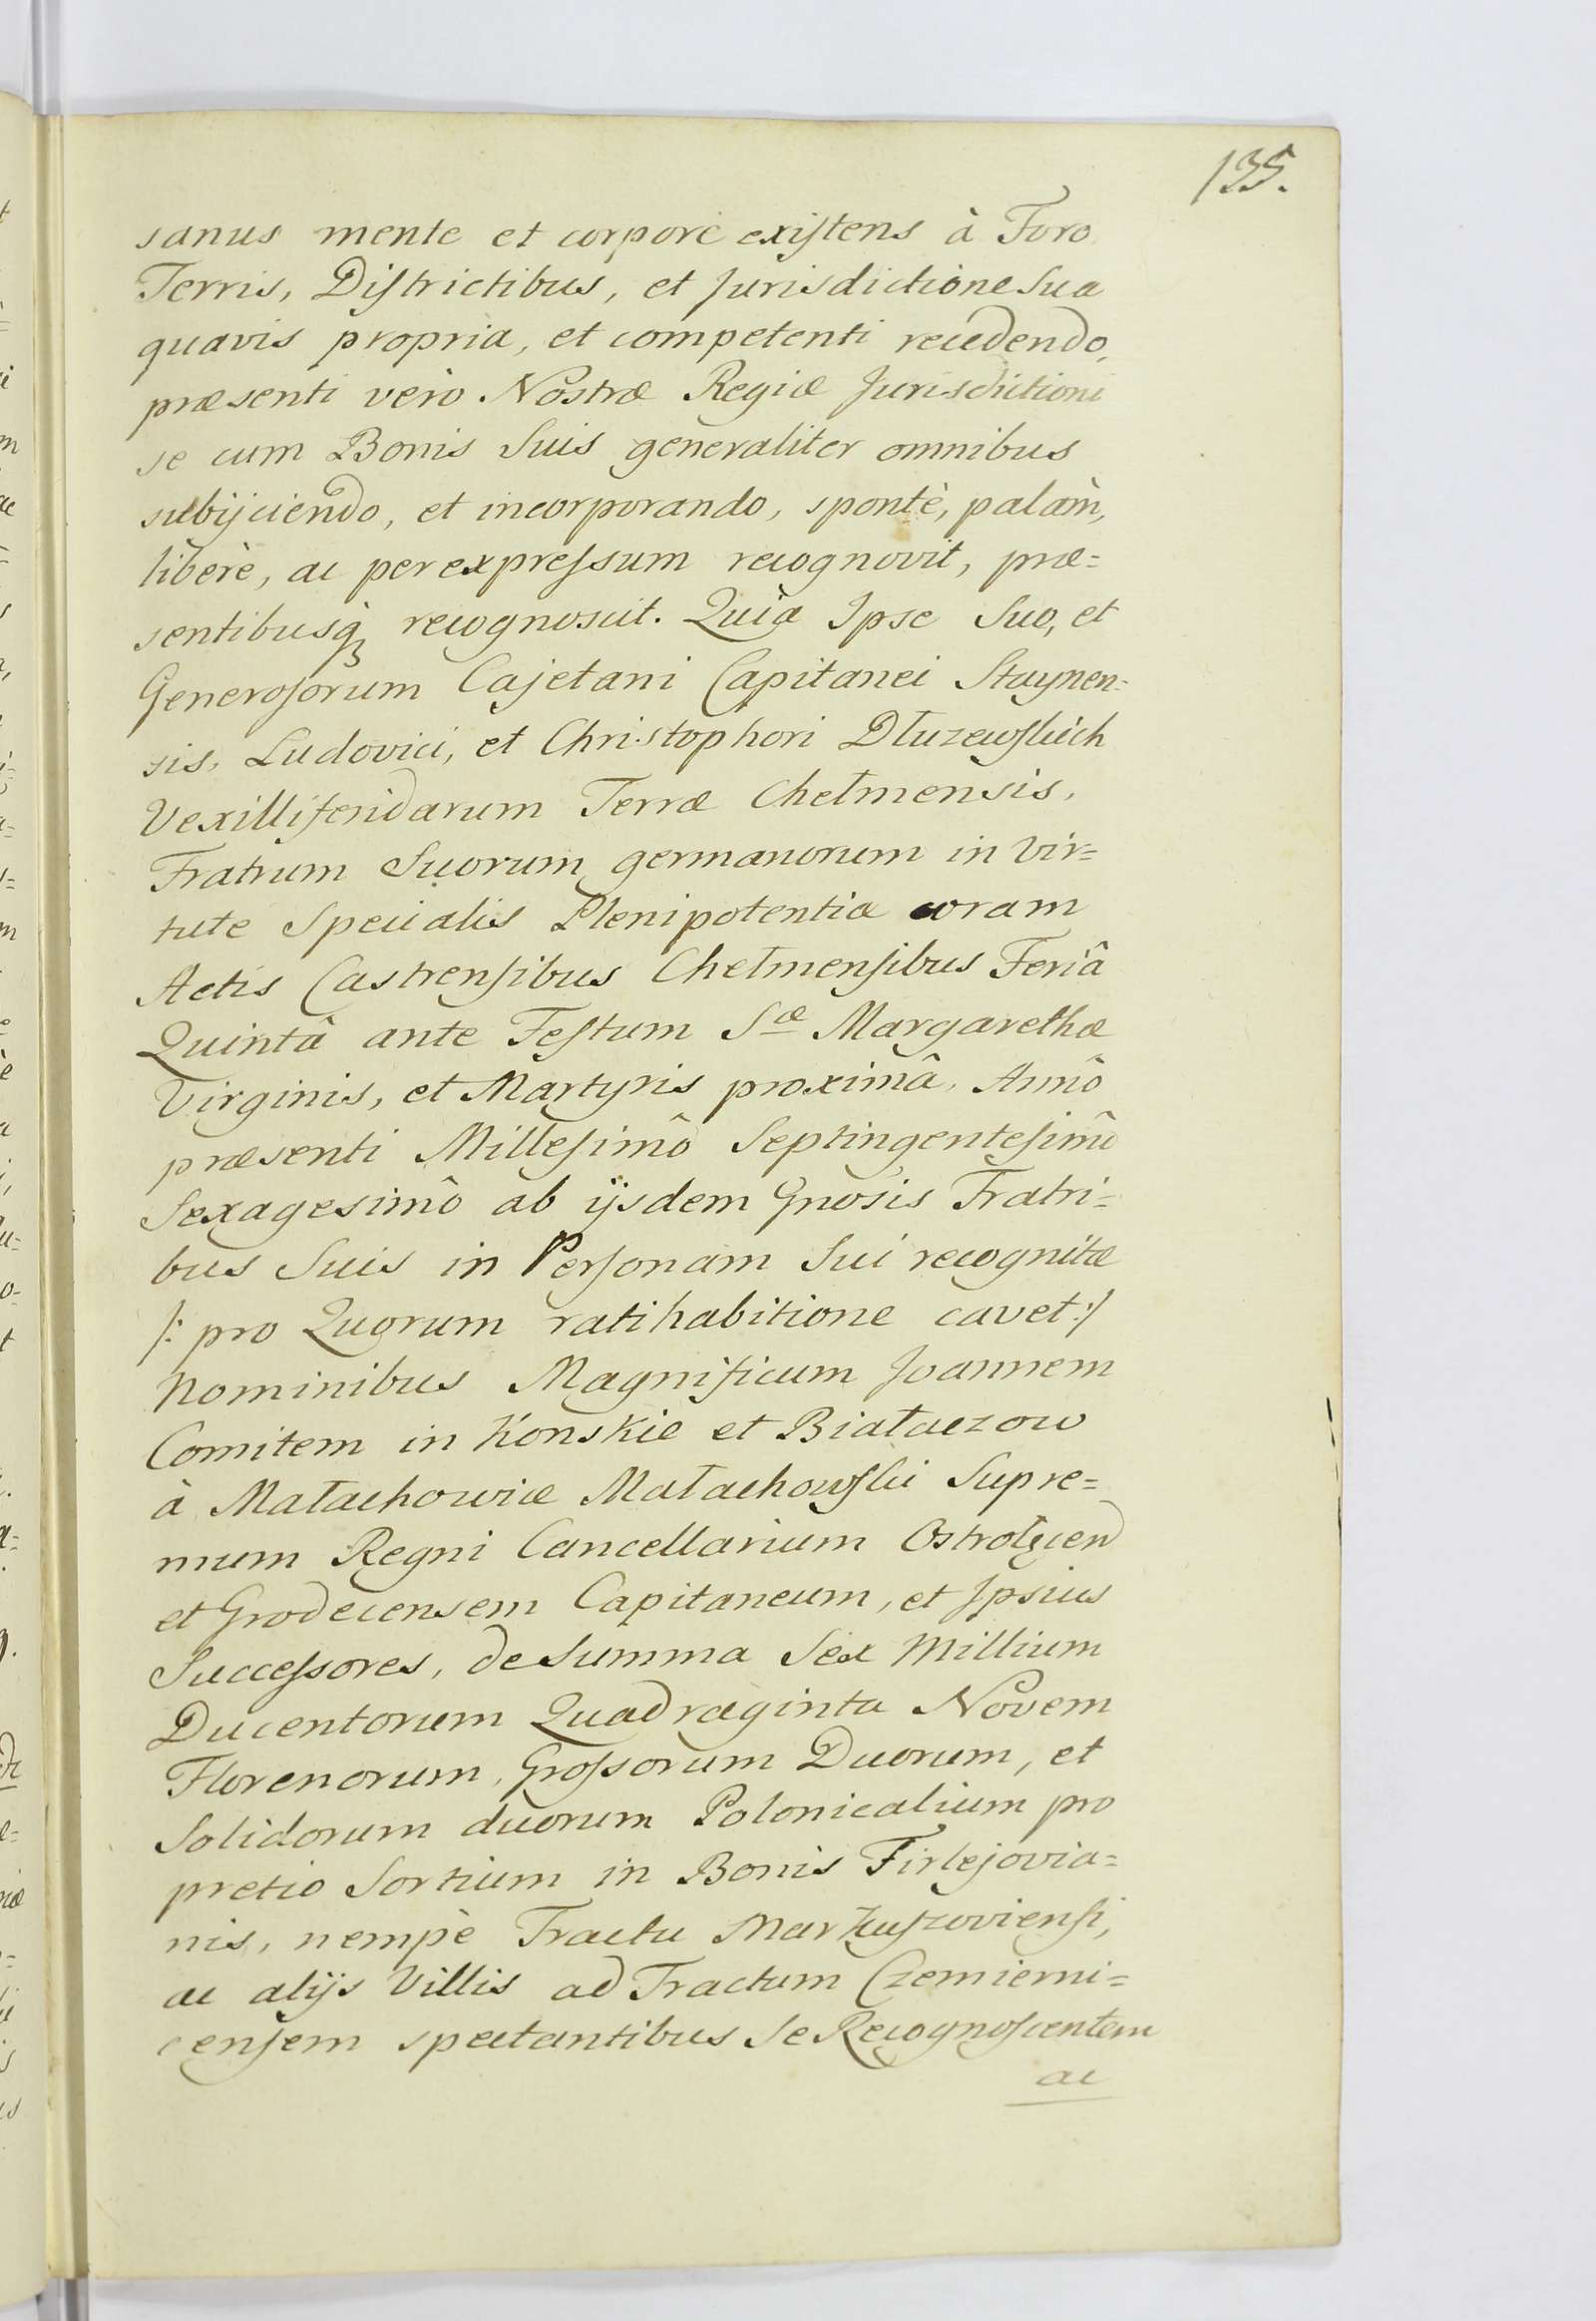 135.
sanus mente et corpore existens à Foro
Terris, Districtibus, et Jurisdictione Sua
quavis propria, et competenti recedendo,
præsenti verò Nostræ Regiæ Jurisdictioni
se cum Bonis Suis generaliter omnibus
subijciendo, et incorporando, spontè, palàm,
liberè, ac per expressum recognovit, præ=
sentibusq́ꝫ recognoscit. Quia Ipse Suo, et
Generosorum Cajetani Capitanei Staynen=
sis, Ludovici, et Christophori Dłuzewskich
Vexilliferidarum Terræ Chełmensis,
Fratrum Suorum germanorum in vir=
tute Specialis Plenipotentiæ coram
Actis Castrensibus Chełmensibus Feriâ
Quintâ ante Festum Sæ Margarethæ
Virginis, et Martyris proximâ, Annô
præsenti Millesimô Septingentesimô
Sexagesimô ab ijsdem Gnosis Fratri=
bus Suis in Personam Sui recognitæ
/: pro Quorum ratihabitione cavet :/
Nominibus Magnificum Joannem
Comitem in Konskie et Białaczow
à Małachowice Małachowski Supre=
mum Regni Cancellarium Ostrołęcen
et Grodecensem Capitaneum, et Ipsius
Successores, de Summa Sex Millium
Ducentorum Quadraginta Novem
Florenorum, Grossorum Duorum, et
Solidorum duorum Polonicalium pro
pretio Sortium in Bonis Firlejovia=
nis, nempè Tractu Markuszoviensi,
ac alijs Villis ad Tractum Czemierni=
censem spectantibus Se Recognoscentem
ac